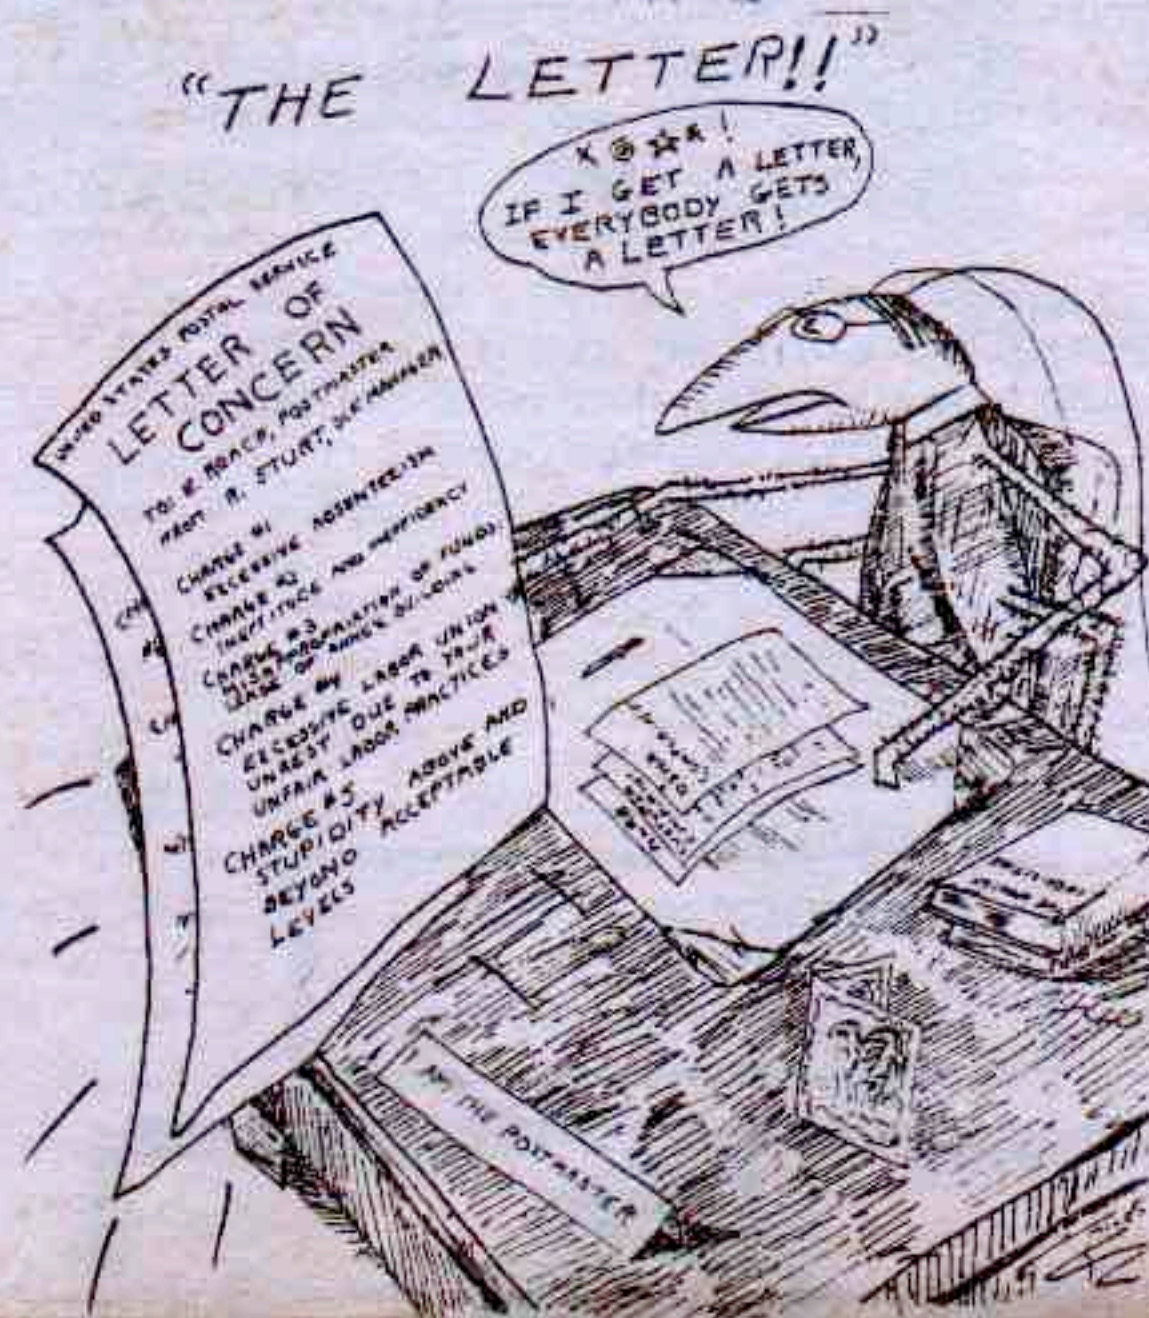 "THE LETTER!!"
!
IF I GET A LETTER,
EVERYBODY GETS
A LETTER!
UNITED STATES POSTAL SERVICE
LETTER OF
CONCERN
TO: POSTMASTER
R. STURT, MANAGER
CHARGE #1
EXCESSIVE ABSENTEEISM
CHARGE #2
INEPTITUDE AND INEFFICIENCY
CHARGE #3
MISAPPROPRIATION OF FUNDS
OF ANNEX BUILDING
CHARGE #4
EXCESSIVE LABOR UNION
UNREST DUE TO YOUR
UNFAIR LABOR PRACTICES
CHARGE #5
STUPIDITY ABOVE AND
BEYOND ACCEPTABLE
LEVELS
THE POSTMASTER